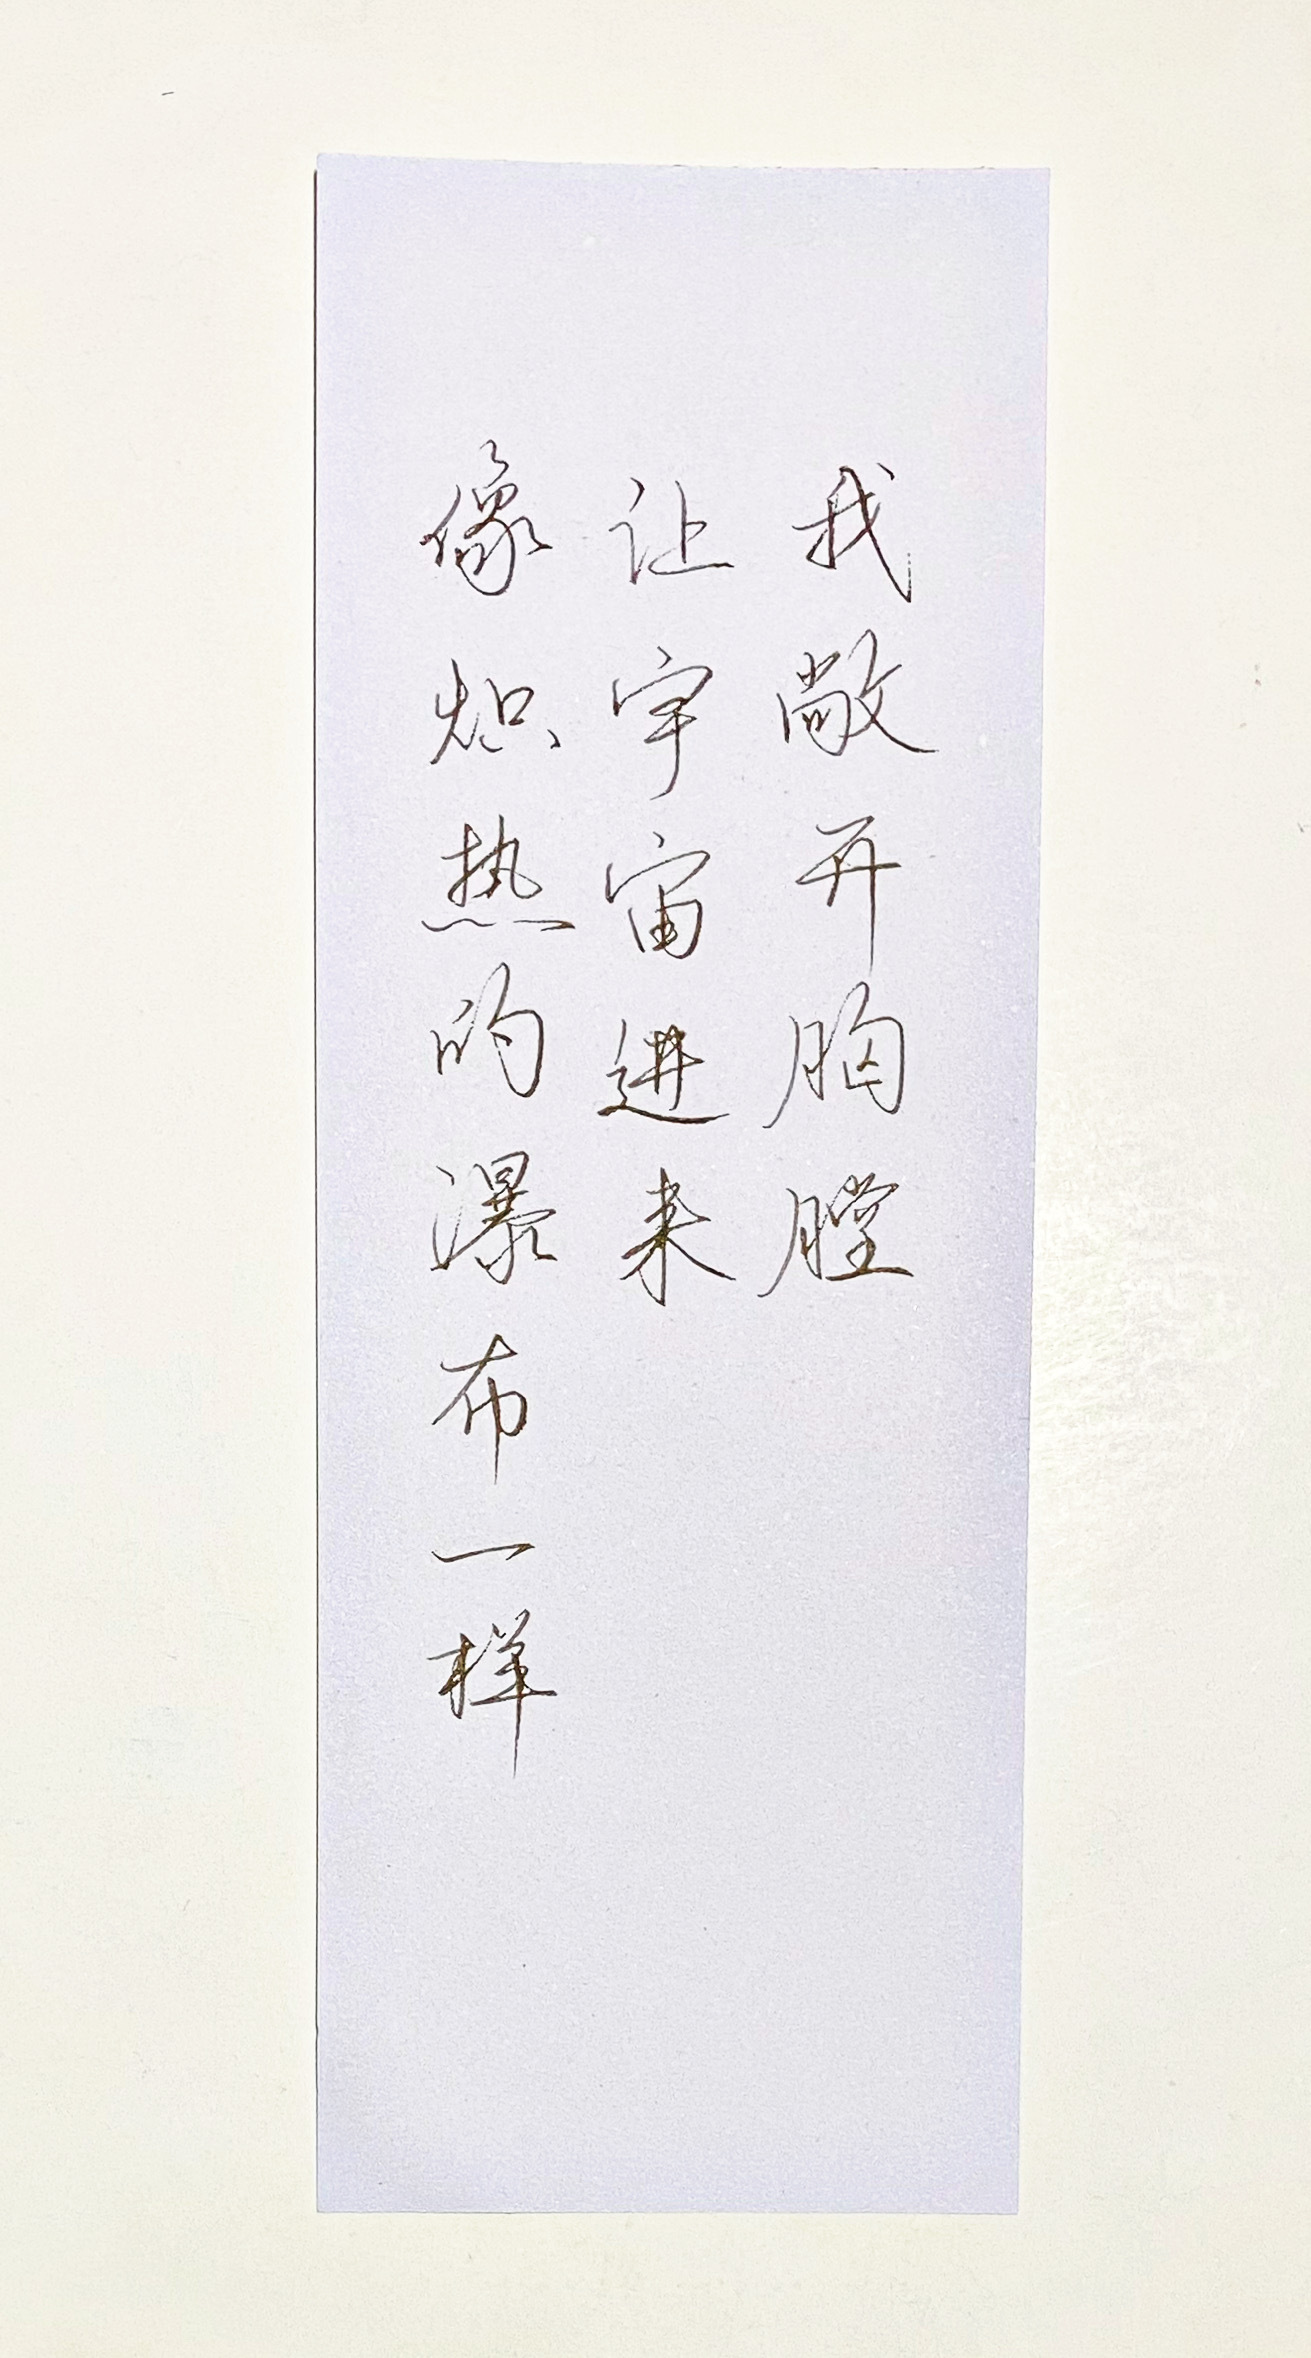 我敞开胸膛
让宇宙进来
像炽热的瀑布一样